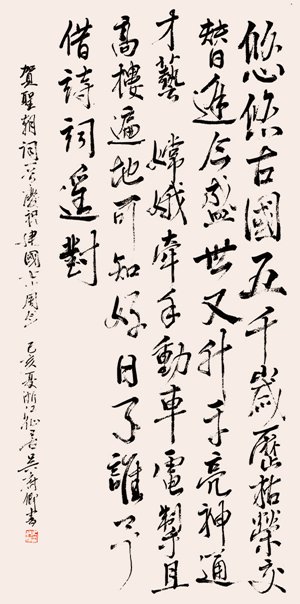 悠悠古國五千歲歷枯榮交
替逢今盛世又升手亮神通
才藝 嫦娥牽手動車電掣且
高樓遍地可知好日子誰不
借詩詞遥對
賀聖朝詞一首慶祝建國七十周年 己亥夏浙江吴書